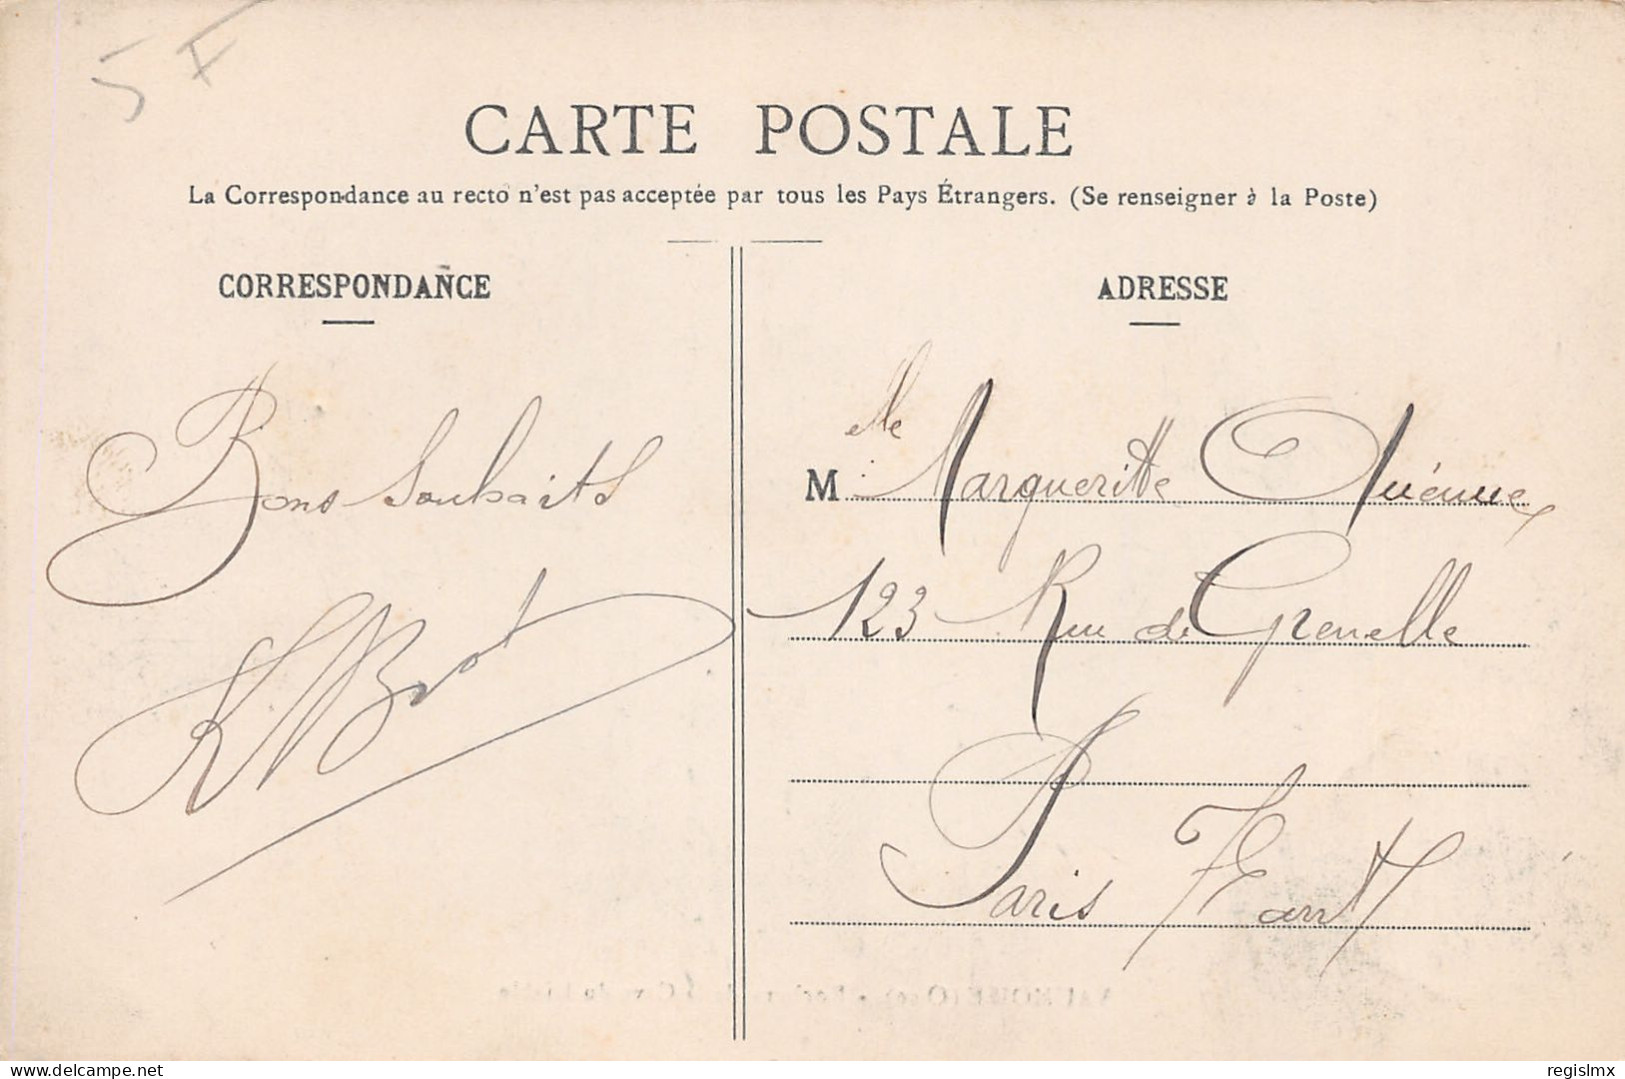 5 F
CARTE POSTALE
La Correspondance au recto n'est pas acceptée par tous les Pays Étrangers. (Se renseigner à la Poste)
CORRESPONDANCE
Bons Souhaits
ADRESSE
Melle Margueritte
123 Rue de Grenelle
Paris 7E arrt
delcampe.net
regislmx